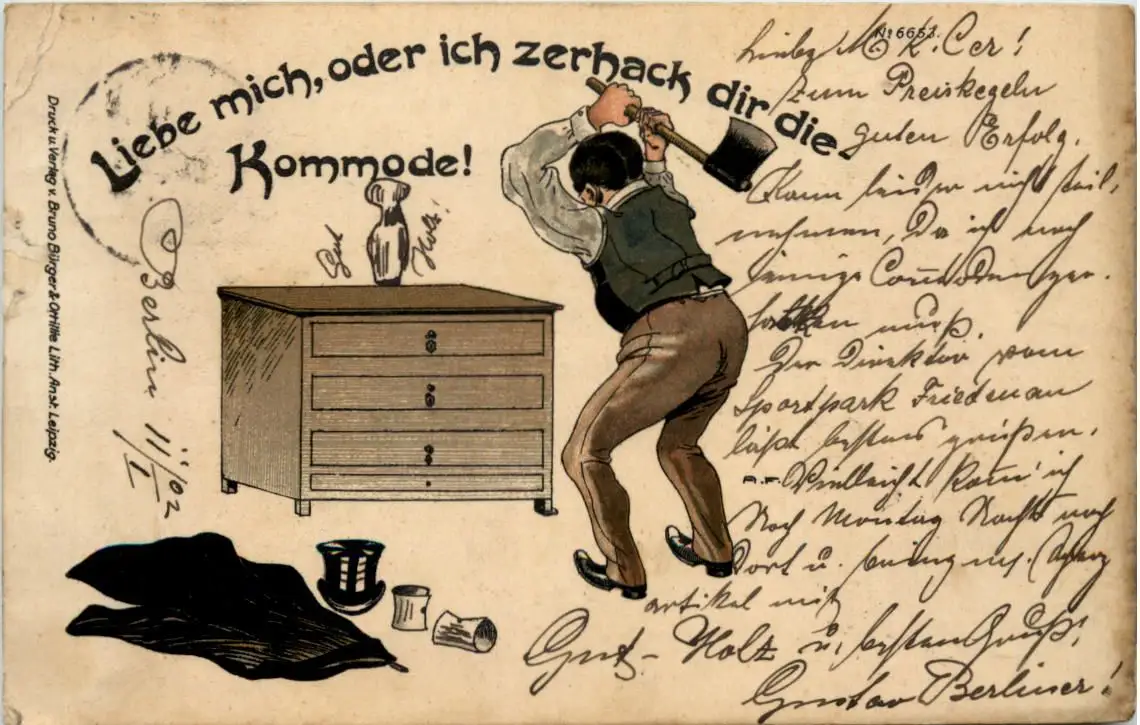 Liebe mich, oder ich zerhack dir die
Kommode!
No 6653.
Druck u. Verlag v. Bruno Bürger & Ottillie Lith. Anst. Leipzig.
Gut
Holz!
Berlin 11/02
I
Liebg M K. Cer!
Zum Preiskegeln
guten Erfolg.
Kann leider nicht teil-
nehmen, da ich noch
einige
muß.
Der Direktor vom
Sportpark Friedenau
läßt bestens grüßen.
A.F.
Vielleicht kom̄ ich
Noch Montag Nacht nach
Dort u. bring
artikel mit
Gut-Holz u. besten Gruß!
Gustav Berliner!